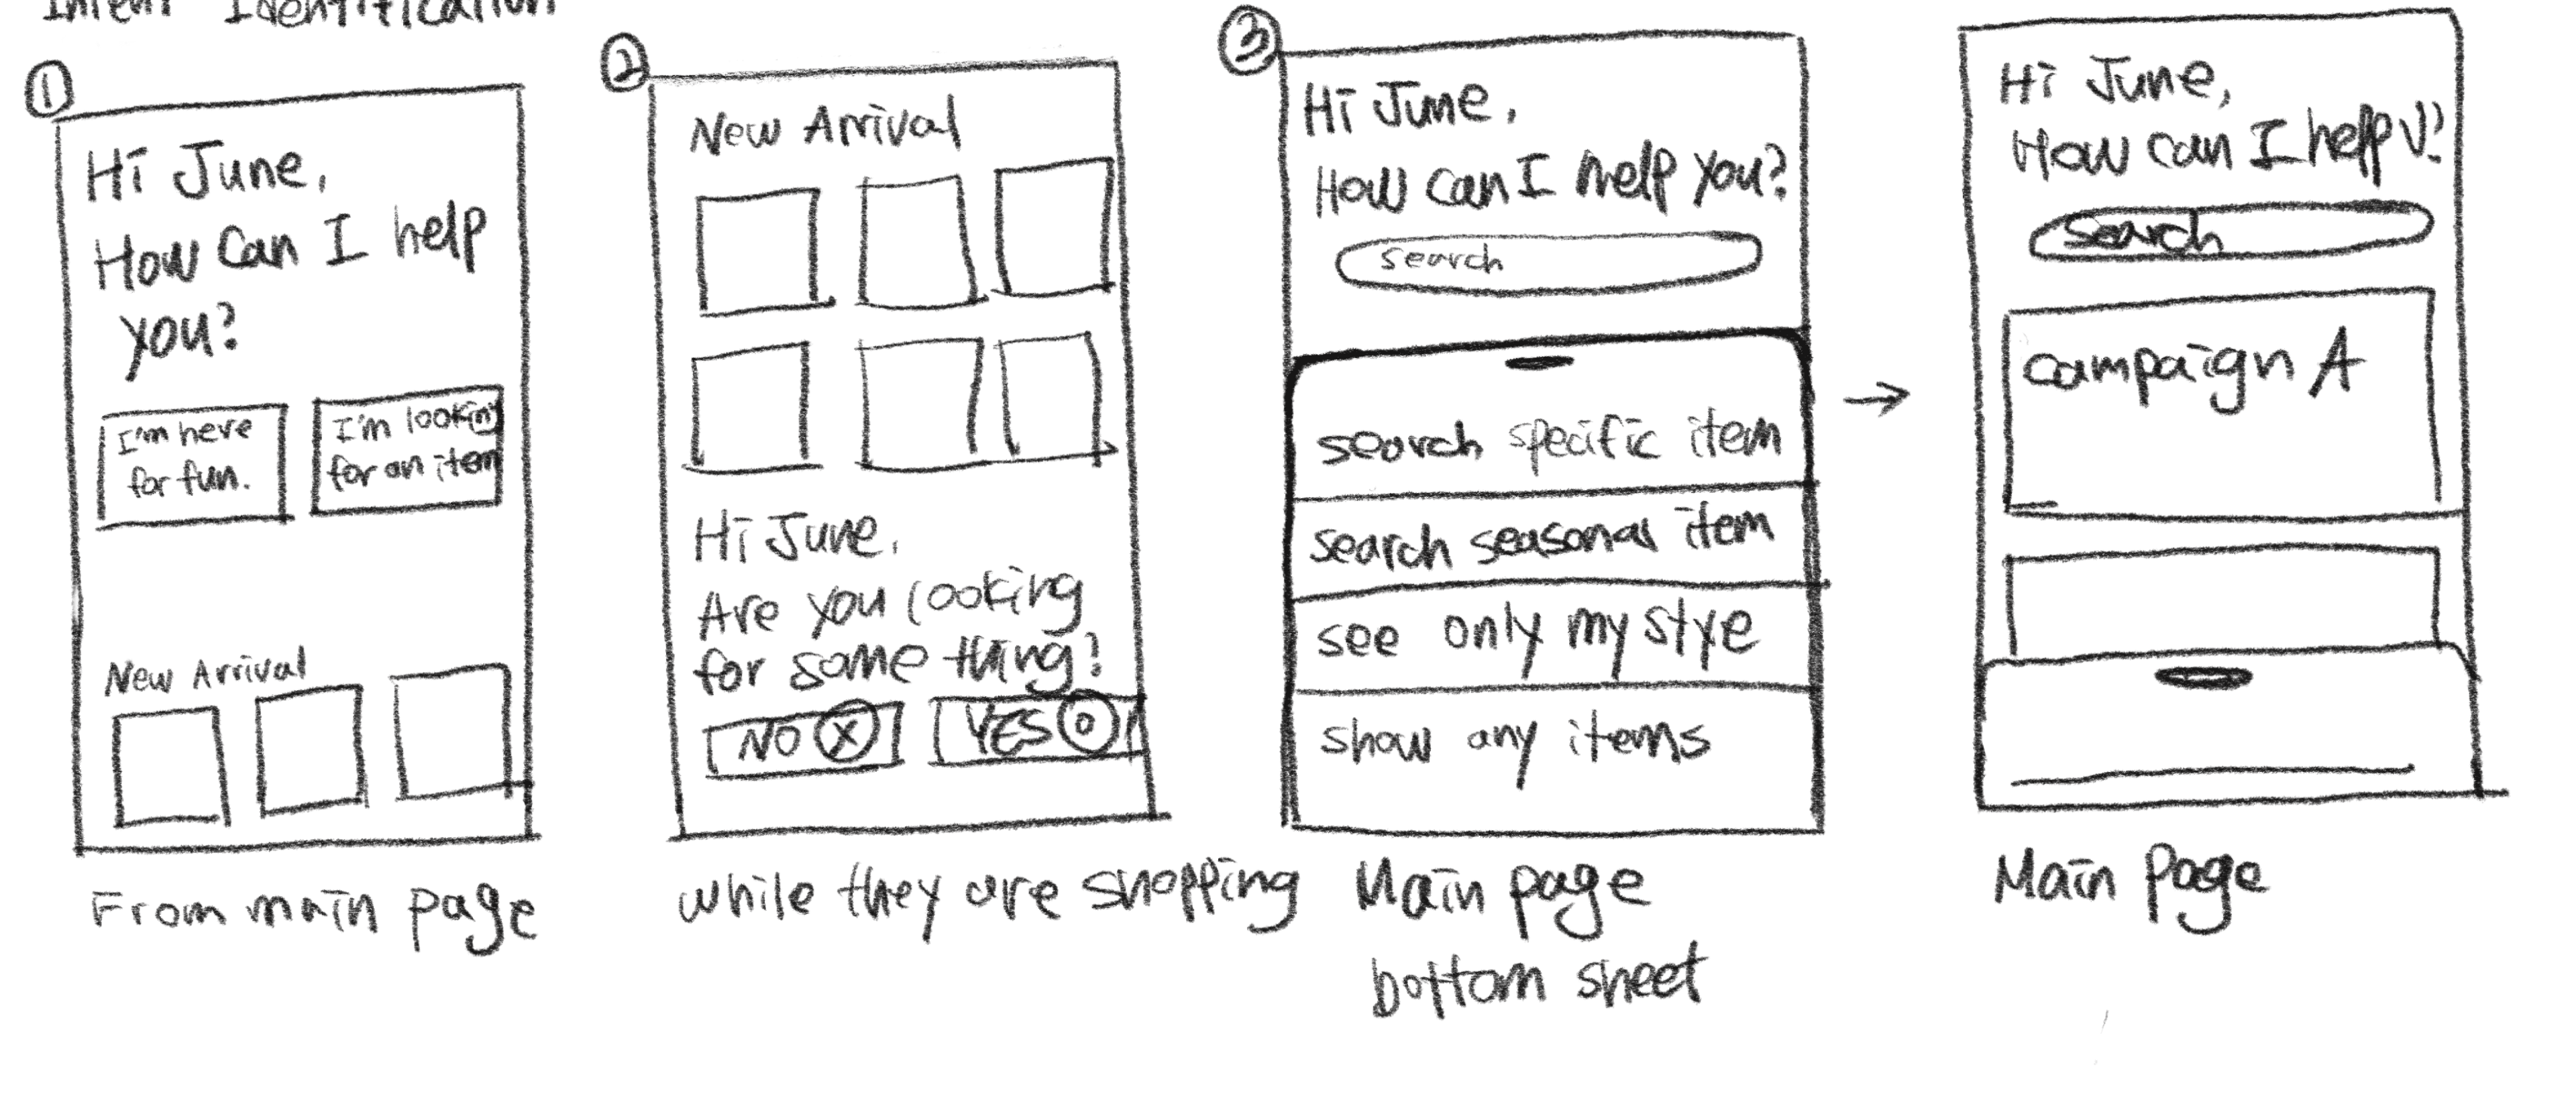 Intent Identification
1
Hi June,
How can I help
you?
I'm here
for fun.
I'm looking
for an item
New Arrival
From main page
2
New Arrival
Hi June,
Are you looking
for something?
NO X
YES O
while they are shopping
3
Hi June,
How can I help you?
search
search specific item
search seasonal item
see only my stye
show any items
Main page
bottom sheet
→
Hi June,
How can I help U?
search
campaign A
Main page